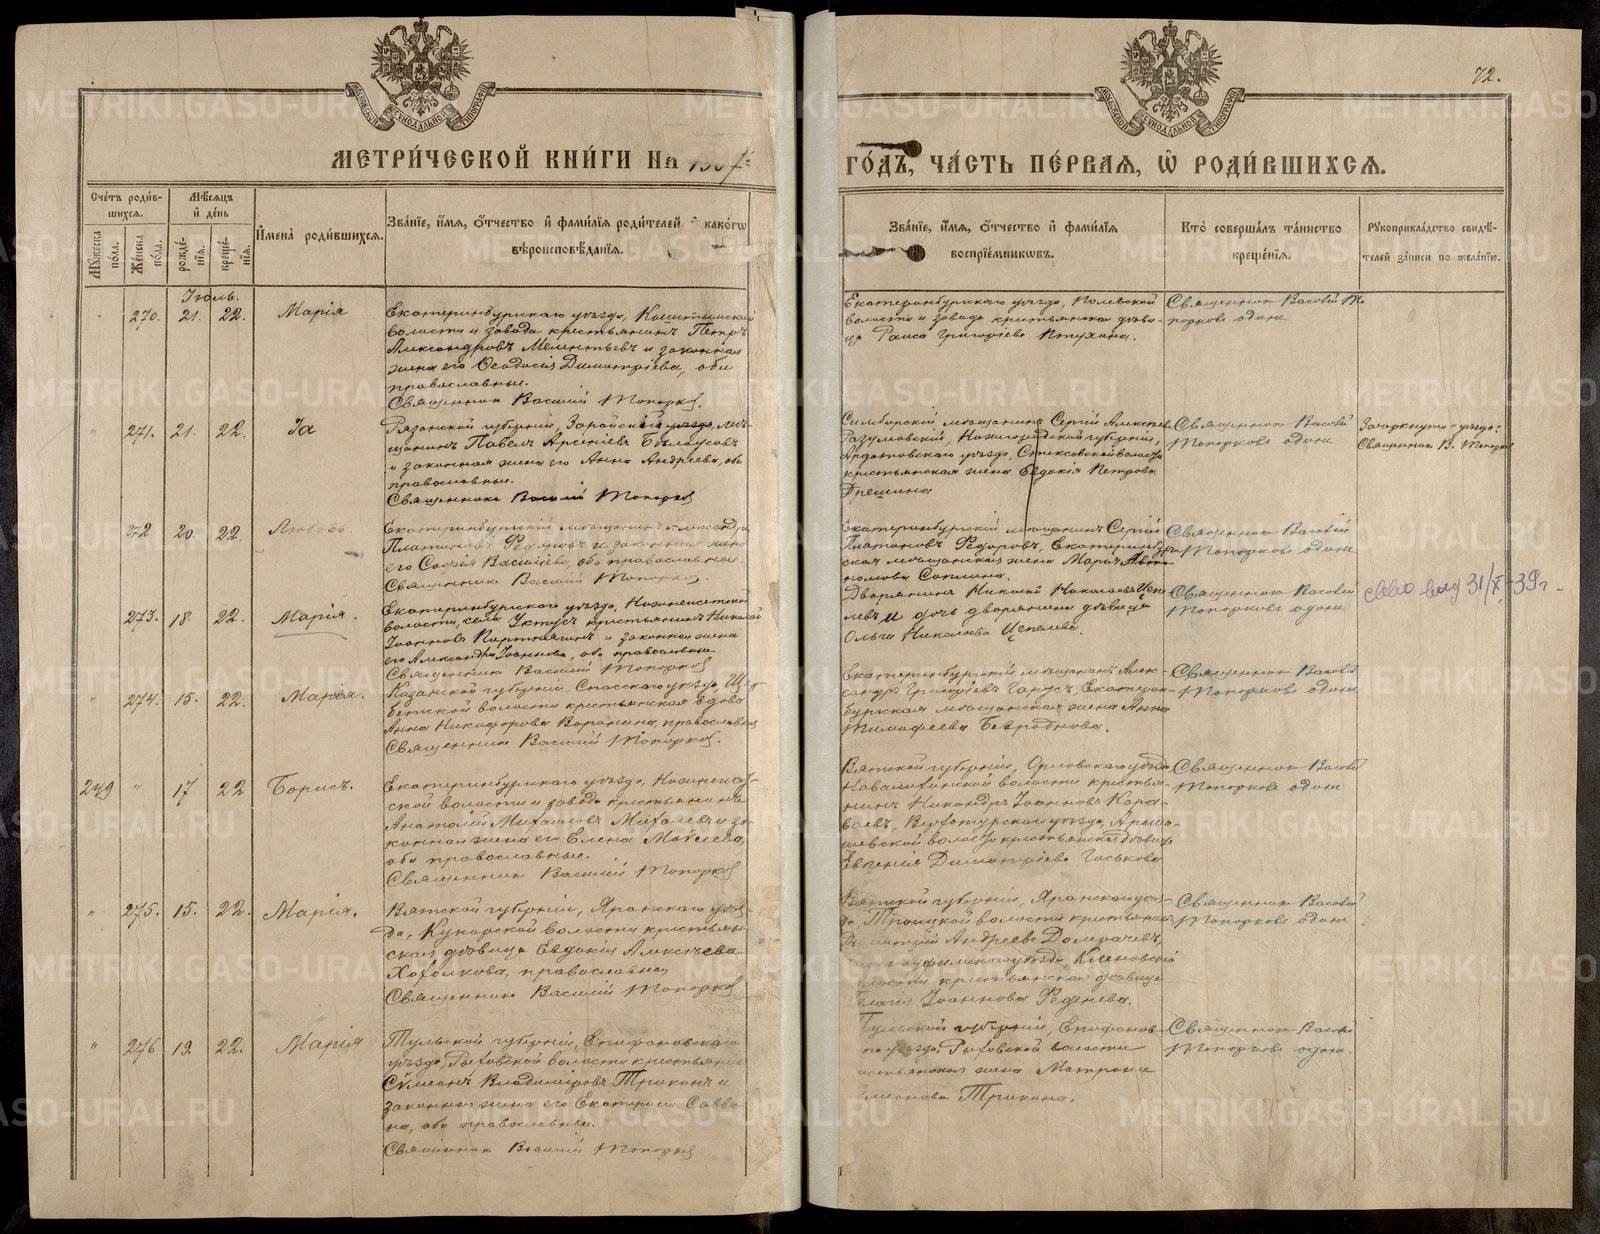 72.
МОСКОВСКОЙ СѴНОДАЛЬНОЙ ТИПОГРАФІИ
МОСКОВСКОЙ СѴНОДАЛЬНОЙ ТИПОГРАФІИ
МЕТРИ́ЧЕСКОЙ КНИ́ГИ НА
ГО́ДЪ, ЧА́СТЬ ПЕ́РВАЯ, Ѡ҆ РОДИ́ВШИХСѦ.
Сче́тъ роди́в-
шихся.
Мꙋ́жеска по́ла.
Же́нска по́ла.
Мѣ́сяцъ
и҆ де́нь
рожде́-
нїя.
креще́-
нїя.
И҆мена̀ роди́вшихся.
Зва́нїе, и҆́мя, ѻ҆́тчество и҆ фами́лїя роди́телей и҆ како́гѡ
вѣроисповѣ́данїя.
Зва́нїе, и҆́мя, ѻ҆́тчество и҆ фами́лїя
воспрїе́мникѡвъ.
Кто̀ соверша́лъ та́инство
креще́нїя.
Рꙋкоприкла́дство свидѣ́-
телей за́писи по жела́нїю.
Іюль.
270. 21. 22. Марія
Екатеринбургскаго уѣзда, Кыштымской
волости и завода крестьянинъ Петръ
Александровъ Мелентьевъ и законная
жена его Ѳеодосія Димитріева, оба
православные.
Священникъ Василій Топорковъ.
Екатеринбургскаго уѣзда, Полевской
волости и завода крестьянская дѣви-
ца Раиса Григоріева Птухина.
Священникъ Василій То-
порковъ один
271. 21. 22. Ія
Рязанской губерніи, Зарайскій уѣзда, мѣ-
щанинъ Павелъ Арсеніевъ Бѣлоусовъ
и законная жена его Анна Андреева, оба
православные.
Священникъ Василій Топорковъ
Симбирскій мѣщанинъ Сергій Алексѣевъ
Разумовскій, Нижегородской губерніи,
Ардатовскаго уѣзда, Стексовской волости
крестьянская жена Евдокія Петрова
Дрешина
Священникъ Василій
Топорковъ один
Зачеркнуто "уѣзда".
Священникъ В. Топорков
272 20. 22. Любовь.
Екатеринбургскій мѣщанинъ Александръ
Платоновъ Ѳедоровъ и законная жена
его Софія Васильева, оба православные.
Священникъ Василій Топорковъ.
Екатеринбургскій мѣщанинъ Сергій
Платоновъ Ѳедоровъ, Екатеринбург-
ская мѣщанская жена Марія Авто-
номова
Священникъ Василій
Топорковъ один
273. 18. 22. Марія.
Екатеринбургскаго уѣзда, Нижнеисетской
волости, села Уктусъ крестьянинъ Николай
Іоанновъ и законная жена
его Александра Іоаннова, оба православные
Священникъ Василій Топорковъ
Дворянинъ Николай Николаевъ Цепе-
левъ и дочь дворянина дѣвица
Ольга Николаева Цепелева.
Священникъ Василій
Топорковъ один
31/X-39г.
" 274. 15. 22. Марія.
Казанской губерніи, Спасскаго уѣзда,
волости крестьянская вдова
Анна Никифорова Воронина, православная
Священникъ Василій Топорковъ.
Екатеринбургскій мѣщанинъ Алек-
сандръ Григоріевъ Гарусъ, Екатерин-
бургская мѣщанская жена Анна
Тимофеева Безроднова.
Священникъ Василій
Топорковъ один
249 " 17 22 Борисъ.
Екатеринбургскаго уѣзда, Нижнеисет-
ской волости и завода крестьянинъ
Анатолій Михаиловъ Михалевъ и за-
конная жена его Елена Моѵсеева,
оба православные.
Священникъ Василій Топорковъ
Вятской губерніи, Орловскаго уѣзда
волости крестья-
нинъ Никандръ Іоанновъ Кара-
ваевъ, Верхотурскаго уѣзда,
волости крестьянская дѣвица
Евгенія Димитріева Госькова
Священникъ Василій
Топорковъ один
" 275. 15. 22. Марія.
Вятской губерніи, Яранскаго уѣз-
да, Кукарской волости крестьян-
ская дѣвица Евдокія Алексѣева
Хохолкова, православная
Священникъ Василій Топорковъ
Вятской губерніи, Яранскаго уѣз-
да, Троицкой волости крестьянинъ
Димитрій Андреевъ Домрачевъ,
уѣзда, Кленовской
волости крестьянская дѣвица
Пелагія Іоаннова Феденева.
Священникъ Василій
Топорковъ один
" 276 19. 22. Марія
Тульской губерніи, Епифановскаго
уѣзда, волости крестьянинъ
Сѵмеонъ Владиміровъ Трикинъ и
законная жена его Екатерина Савви-
на, оба православные.
Священникъ Василій Топорков
Тульской губерніи, Епифанов-
го уѣзда, волости
крестьянская жена Матрона
Трикина.
Священникъ Василій
Топорковъ один.
METRIKI.GASO-URAL.RU